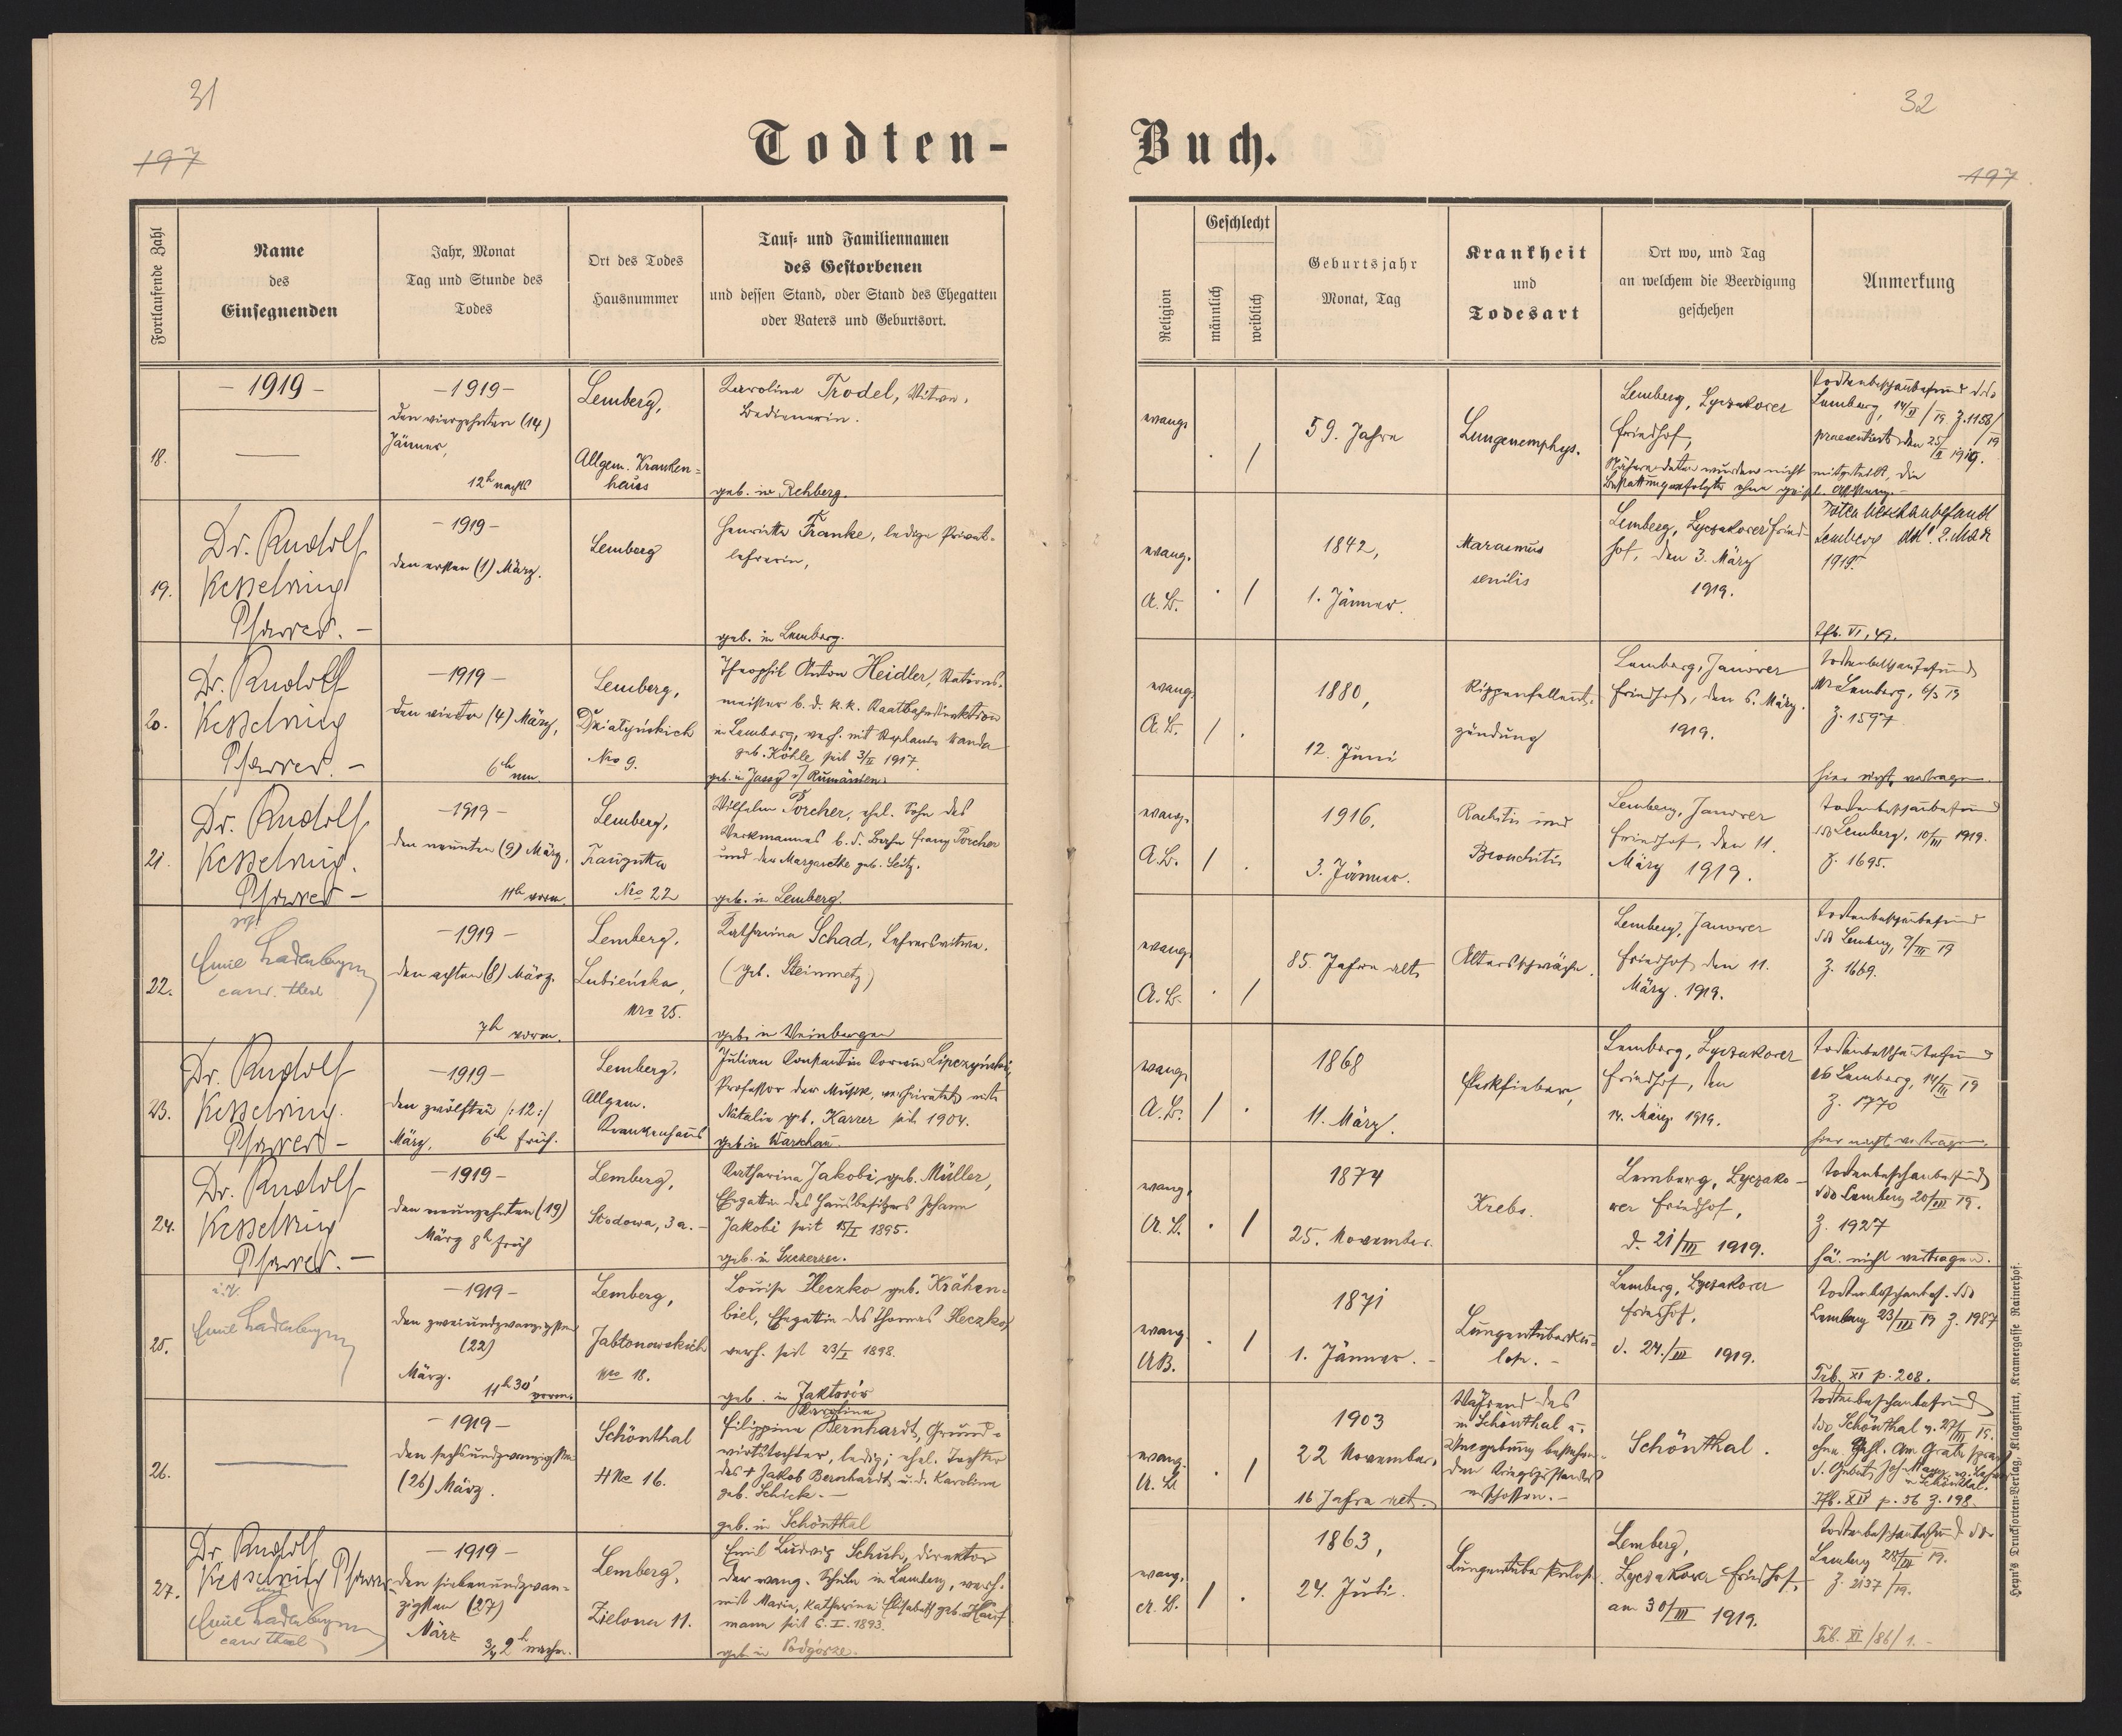 31
197
Todten-
Fortlaufende Zahl
Name
des
Einsegnenden
Jahr, Monat
Tag und Stunde des
Todes
Ort des Todes
Hausnummer
Tauf- und Familiennamen
des Gestorbenen
und dessen Stand, oder Stand des Ehegatten
oder Vaters und Geburtsort.
18.
– 1919 –
– 1919 –
den vierzehnten (14)
Jänner,
12h nachts
Lemberg,
Allgem. Kranken-
haus
Karolina Trodel, Witwe,
Bedienerin.
geb. in Rehberg.
19.
Dr. Rudolf
Kesselring
Pfarrer. –
– 1919 –
den ersten (1) März.
Lemberg
Henriette Franke, ledige Privat-
lehrerin,
geb. in Lemberg.
20.
Dr. Rudolf
Kesselring
Pfarrer. –
– 1919 –
den vierten (4) März,
6h nm.
Lemberg,
Dzialyńskich
Nro 9.
Theophil Anton Heidler, Stations-
meister b. d. k. k. Staatsbahndirektion
in Lemberg, verh. mit Stephanie Wanda
geb. Köhle seit 3/II 1917.
geb. in Jassy i/ Rumänien.
21.
Dr. Rudolf
Kesselring.
Pfarrer –
– 1919 –
den neunten (9) März,
11h vorm.
Lemberg,
Traugutta
Nro 22
Wilhelm Porcher, ehel. Sohn des
Werkmannes b. d. Bahn Franz Porcher
und der Margarethe geb. Seitz.
geb. in Lemberg.
22.
Emil Ladenberger
cand. theol
– 1919 –
den achten (8) März.
7h vorm.
Lemberg,
Lubieńska,
Nro 25.
Katharina Schad, Lehrerswitwe.
(geb. Steinmetz)
geb. in Weinbergen
23.
Dr. Rudolf
Kesselring.
Pfarrer –
– 1919 –
den zwölften /:12:/
März, 6h früh.
Lemberg,
Allgem.
Krankenhaus
Julian Konstantin Korwin Lipczyński,
Professor der Musik, verheiratet mit
Natalie geb. Karrer seit 1904.
geb. in Warschau.
24.
Dr. Rudolf
Kesselring
Pfarrer. –
– 1919 –
den neunzehnten (19)
März 8h früh
Lemberg,
Stodowa, 3a. –
Katharina Jakobi geb. Müller,
Ehegattin des Hausbesitzers Johann
Jakobi seit 15/I 1895.
geb. in Szczerzec.
25.
i. V.
Emil Ladenberger
– 1919 –
den zweiundzwanzigsten
(22)
März.
11h 30' vorm.
Lemberg,
Jabłonowskich
Nro 18.
Louise Heczko geb. Krähen-
biel, Ehegattin des Thomas Heczko,
verh. seit 23/I 1898.
geb. in Jaktorów
26.
– 1919 –
den sechsundzwanzigsten
(26) März.
Schönthal
HNo 16.
Karoline
Filippine Bernhardt, Grund-
wirtstochter, ledig; ehel. Tochter
des + Jakob Bernhardt u. d. Karoline
geb. Schick. –
geb. in Schönthal
27.
Dr. Rudolf
Kesselring Pfarrer
und
Emil Ladenberger
cand theol
– 1919 –
den siebenundzwan-
zigsten (27)
März
3/4 2h nachm.
Lemberg,
Zielona 11.
Emil Ludwig Schuh, Direktor
der evang. Schule in Lemberg, verh.
mit Maria, Katharina Elisabeth geb. Hauf
mann seit 5. I. 1893.
geb. in Podgórze.
32
197
Buch.
Religion
Geschlecht
männlich
weiblich
Geburtsjahr
Monat, Tag
Krankheit
und
Todesart
Ort wo, und Tag
an welchem die Beerdigung
geschehen
Anmerkung
evang.
. /
59. Jahre
Lungenemphys.
Lemberg, Lyczakower
Friedhof,
Nähere Daten wurden nicht mitgeteilt, die
Bestattung erfolgte ohne geistl. Assistenz. –
Todtenbeschaubefund ddo
Lemberg, 14/II /19 Z. 1158/
praesentiert den 25/II 1919.
evang.
A. B.
. /
1842,
1. Jänner.
Marasmus
senilis
Lemberg, Lyczakower Fried-
hof, den 3. März
1919.
Totenbeschaubefund
Lemberg ddt. 2. März
1919.
Tfb. VI, 49.
evang.
A. B.
/ .
1880,
12. Juni
Rippenfellent-
zündung
Lemberg, Janower
Friedhof, den 6. März.
1919.
Todtenbeschaubefund
Lemberg, 6/3 19
Z. 1597
hier nicht vertragen.
evang.
A. B.
/ .
1916,
3. Jänner.
Rachitis und
Bronchitis
Lemberg, Janower
Friedhof, den 11.
März 1919.
Todtenbeschaubefund
ddo Lemberg, 10/III 1919.
Z. 1695.
evang.
A. B.
. /
85. Jahre alt
Altersschwäche.
Lemberg, Janower
Friedhof den 11.
März. 1919.
Todtenbeschaubefund
ddo Lemberg, 9/III 19
Z. 1669.
evang.
A. B.
/ .
1868
11. März.
Fleckfieber,
Lemberg, Lyczakower
Friedhof, den
14. März 1919.
Todtenbeschaubefund
ddo Lemberg, 14/III 19
Z. 1770
hier nicht vertragen.
evang.
A. B.
. /
1874
25. November.
Krebs.
Lemberg, Lyczako-
wer Friedhof,
d. 21/III 1919.
Todtenbeschaubefund
ddo Lemberg 20/III 19.
Z. 1927
hä. nicht vertragen.
evang.
AB.
. /
1871
1. Jänner. –
Lungentuberku-
lose. –
Lemberg, Lyczakower
Friedhof,
d. 24./III 1919.
Todtenbeschaubef. ddo
Lemberg 23/III 19 Z. 1987
Trb. XI p. 208.
evang.
A. B.
. /
1903
22 November,
16 Jahre alt.
Während des
in Schönthal u.
Umgebung bestehen-
den Kriegszustandes
erschossen. –
Schönthal.
Todtenbeschaubefund
ddo Schönthal v. 27/III 19.
ohne Zahl. Am Grabe sprach
d. Gebete Joh. Manz
in Schönthal.
Tfb. XIV p. 56 Z. 198.
evang.
A. B.
/ .
1863,
24. Juli.
Lungentuberkulose.
Lemberg,
Lyczakower Friedhof,
am 30/III 1919.
Todtenbeschaubefund ddo
Lemberg 28/III 19.
Z. 2137 /19.
Trb. XI /86/ 1. –
Heyn's Drucksorten-Verlag, Klagenfurt, Kramergasse Rainerhof.